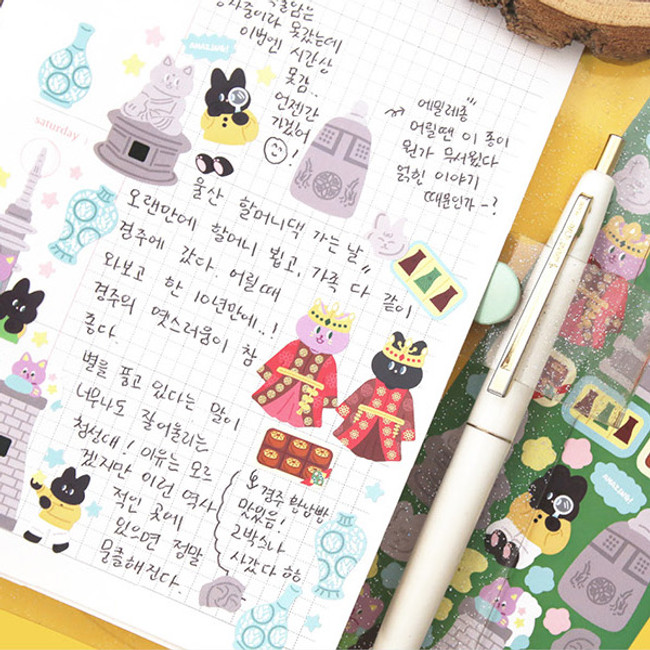 이번엔 시간상
못감..
언젠간
가겠어
!
AMAZING!
에밀레종
어릴땐 이 종이
뭔가 무서웠다
얽힌 이야기
때문인가~?
saturday
울산 할머니댁 가는 날
오랜만에 할머니 뵙고, 가족 다 같이
경주에 갔다. 어릴때
와보고 한 10년만에..!
경주의 옛스러움이 참
좋다.
별을 품고 있다는 말이
너무나도 잘어울리는
첨성대! 이유는 모르
겠지만 이런 역사
적인 곳에
있으면 정말
뭉클해진다.
경주 황남빵
맛있음!
2박스나
사갔다 핳
AMAZING!